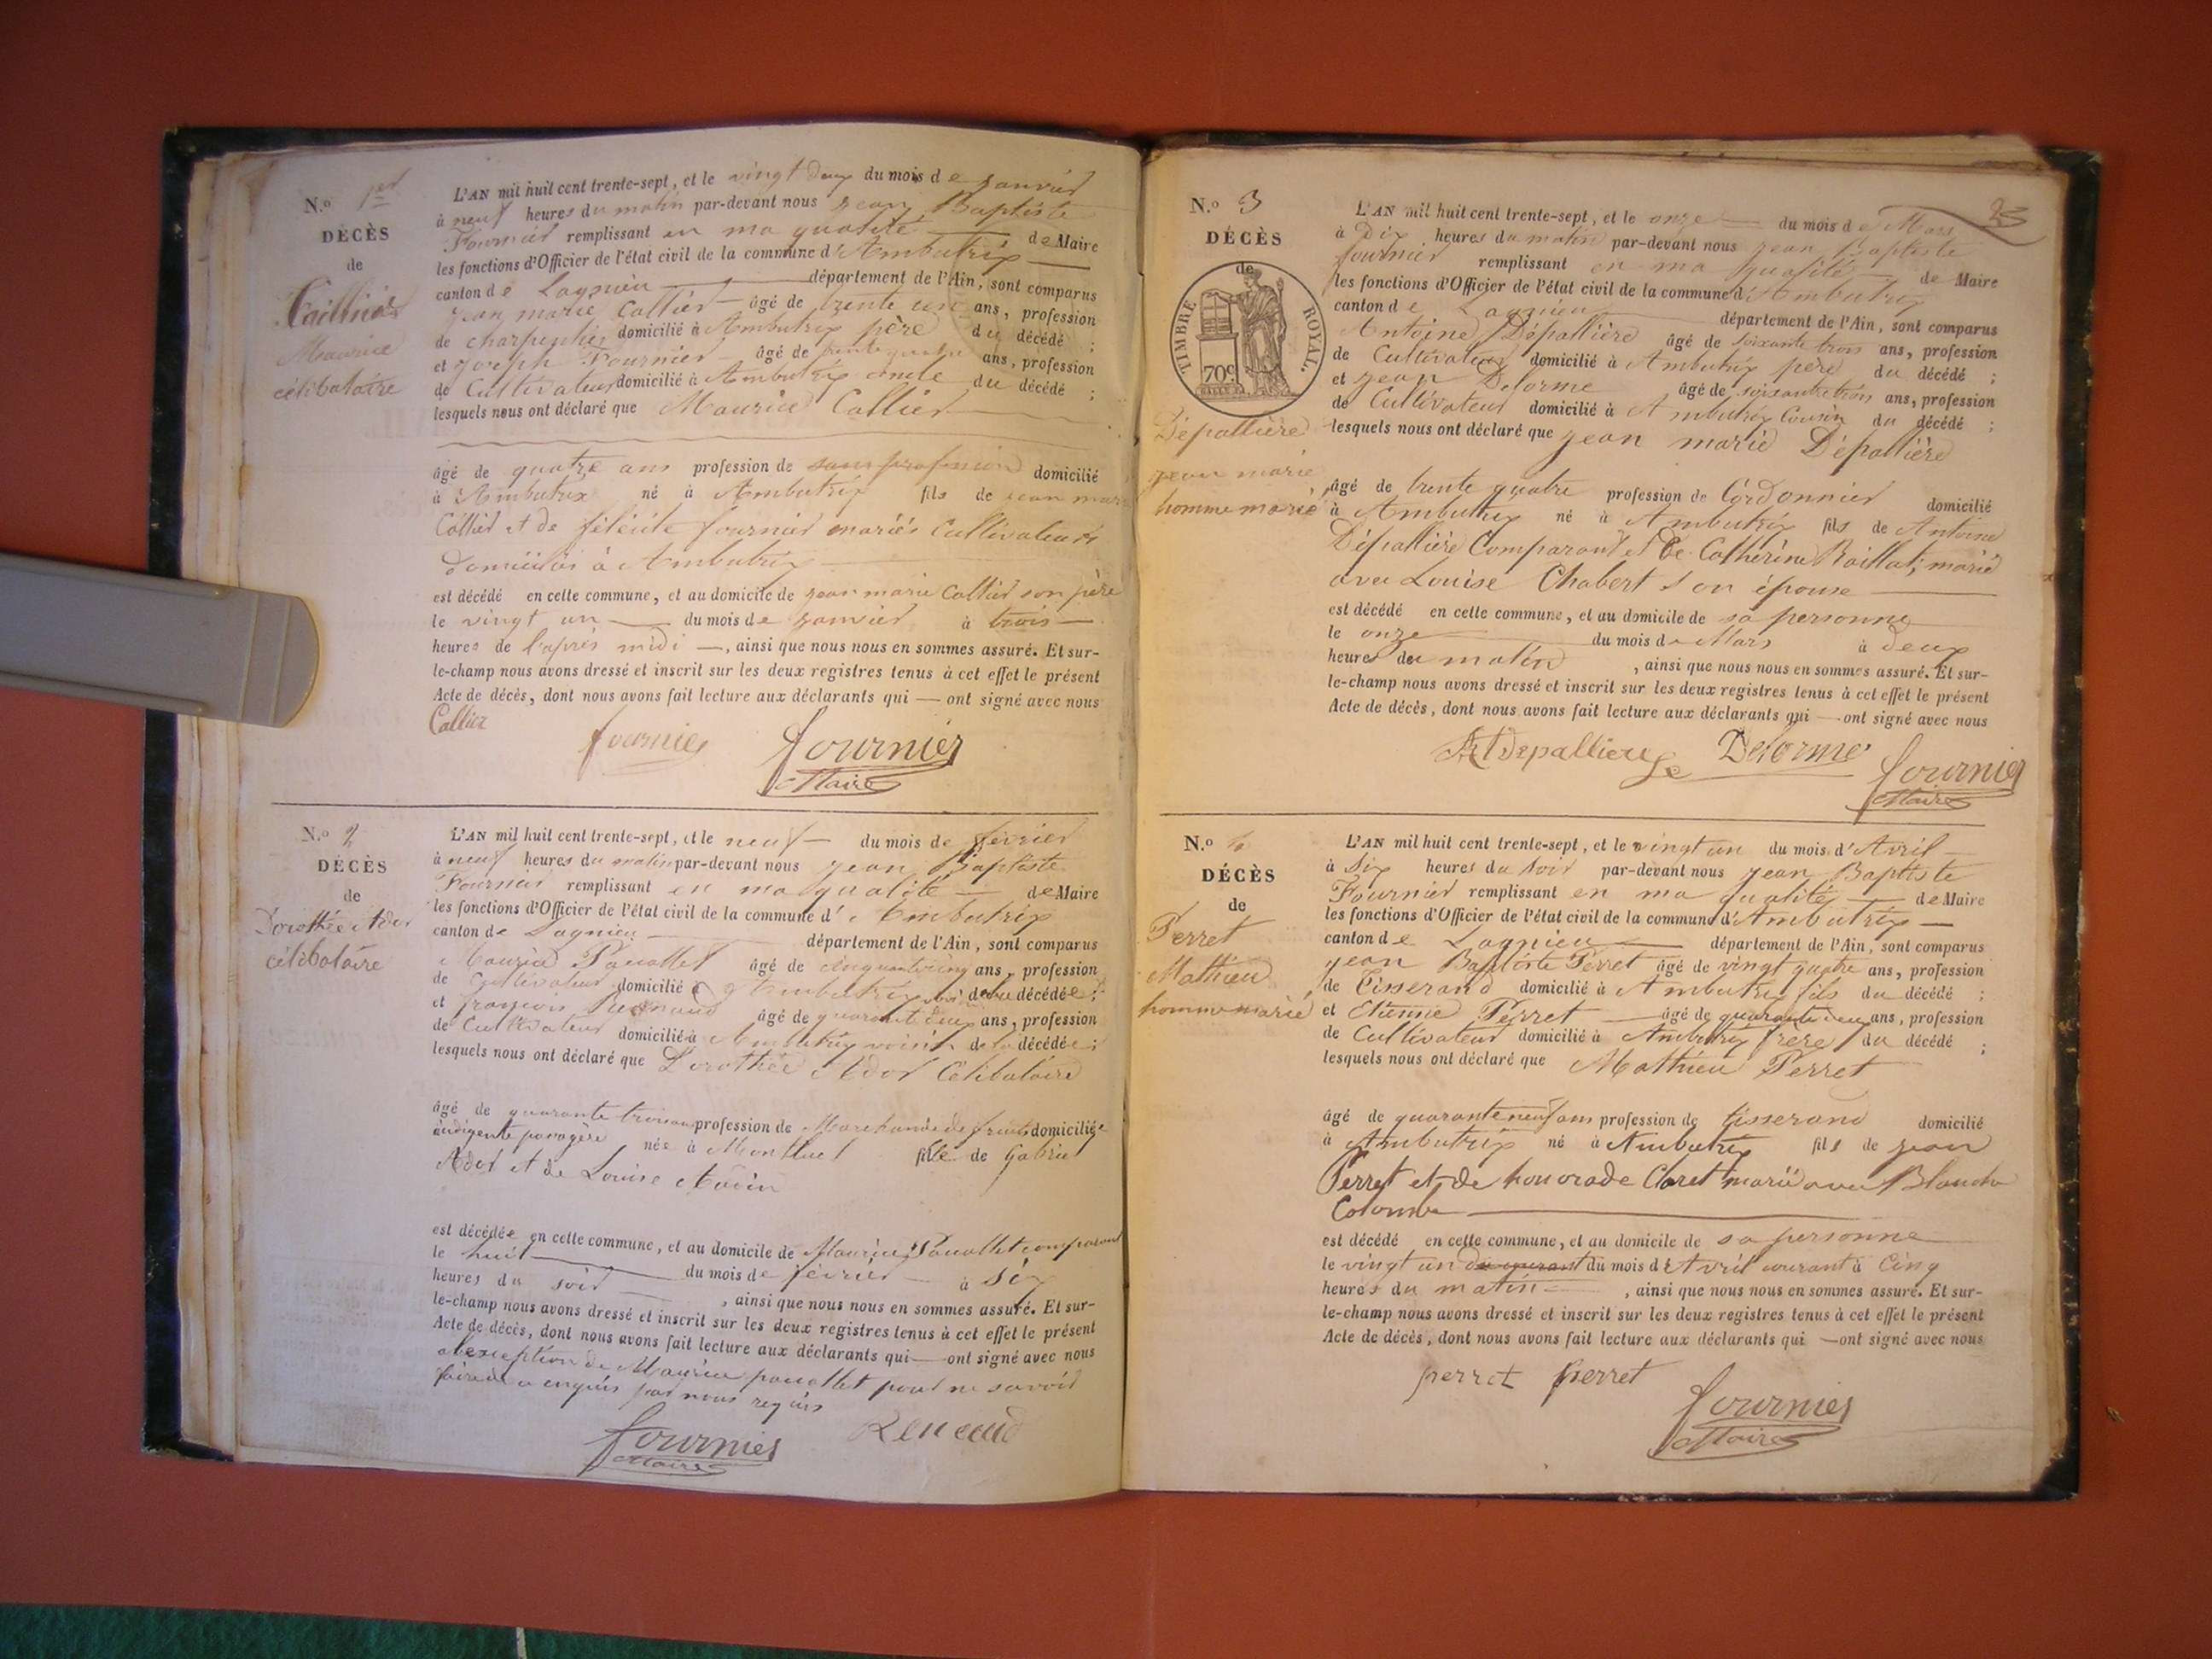 N.º 1er
DÉCÈS
de
Caillier
Maurice
célibataire
L'AN mil huit cent trente-sept, et le vingt deux du mois de janvier
à neuf heures du matin par-devant nous jean Baptiste
Fournier remplissant en ma qualité de Maire
les fonctions d'Officier de l'état civil de la commune d'Ambutrix
canton de Lagnieu département de l'Ain, sont comparus
jean marie Callier âgé de trente un ans, profession
de charpentier domicilié à Ambutrix père du décédé ;
et joseph Fournier âgé de trente quatre ans, profession
de Cultivateur domicilié à Ambutrix oncle du décédé ;
lesquels nous ont déclaré que Maurice Callier
âgé de quatre ans profession de sans profession domicilié
à Ambutrix né à Ambutrix fils de jean marie
Collier et de félicité fournier mariés Cultivateurs
domiciliés à Ambutrix
est décédé en cette commune, et au domicile de jean marie Collier son père
le vingt un du mois de janvier à trois
heures de l'après midi —, ainsi que nous nous en sommes assuré. Et sur-
le-champ nous avons dressé et inscrit sur les deux registres tenus à cet effet le présent
Acte de décès, dont nous avons fait lecture aux déclarants qui — ont signé avec nous
Callier
fournier fournier
Maire
N.º 2
DÉCÈS
de
Dorothée Ador
célibataire
L'AN mil huit cent trente-sept, et le neuf du mois de février
à neuf heures du matin par-devant nous jean Baptiste
Fournier remplissant en ma qualité de Maire
les fonctions d'Officier de l'état civil de la commune d'Ambutrix
canton de Lagnieu département de l'Ain, sont comparus
Maurice Pacallet âgé de cinquante cinq ans, profession
de Cultivateur domicilié à Ambutrix voisin de la décédée ;
et françois Renaud âgé de quarante deux ans, profession
de Cultivateur domicilié à Ambutrix voisin de la décédée ;
lesquels nous ont déclaré que Dorothée Ador Célibataire
âgé de quarante trois ans profession de Marchande de fruits domiciliée
indigente passagère née à Montluel fille de Gabriel
Ador et de Louise
est décédée en cette commune, et au domicile de Maurice Pacallet comparant
le huit du mois de février à six
heures du soir , ainsi que nous nous en sommes assuré. Et sur-
le-champ nous avons dressé et inscrit sur les deux registres tenus à cet effet le présent
Acte de décès, dont nous avons fait lecture aux déclarants qui — ont signé avec nous
à l'exception de Maurice pacallet pour ne savoir
faire de ce enquis par nous requis
fournier Renaud
Maire
23
N.º 3
DÉCÈS
de
TIMBRE ROYAL.
70c
Dépallière
jean marie
homme marié
L'AN mil huit cent trente-sept, et le onze du mois de Mars
à Dix heures du matin par-devant nous jean Baptiste
fournier remplissant en ma qualité de Maire
les fonctions d'Officier de l'état civil de la commune d'Ambutrix
canton de Lagnieu département de l'Ain, sont comparus
Antoine Dépallière âgé de soixante trois ans, profession
de Cultivateur domicilié à Ambutrix père du décédé ;
et jean Delorme âgé de soixante trois ans, profession
de Cultivateur domicilié à Ambutrix Cousin du décédé ;
lesquels nous ont déclaré que jean marie Dépallière
âgé de trente quatre profession de Cordonnier domicilié
à Ambutrix né à Ambutrix fils de Antoine
Dépallière Comparant et De Catherine Baillat, marié
avec Louise Chabert son épouse
est décédé en cette commune, et au domicile de sa personne
le onze du mois de Mars à deux
heures du matin , ainsi que nous nous en sommes assuré. Et sur-
le-champ nous avons dressé et inscrit sur les deux registres tenus à cet effet le présent
Acte de décès, dont nous avons fait lecture aux déclarants qui — ont signé avec nous
At depalliere Delorme fournier
Maire
N.º 4
DÉCÈS
de
Perret
Mathieu
homme marié
L'AN mil huit cent trente-sept, et le vingt un du mois d'Avril
à six heures du soir par-devant nous jean Baptiste
Fournier remplissant en ma qualité de Maire
les fonctions d'Officier de l'état civil de la commune d'Ambutrix
canton de Lagnieu département de l'Ain, sont comparus
jean Baptiste Perret âgé de vingt quatre ans, profession
de Tisserand domicilié à Ambutrix fils du décédé ;
et Etienne Perret âgé de quarante deux ans, profession
de Cultivateur domicilié à Ambutrix frère du décédé ;
lesquels nous ont déclaré que Mathieu Perret
âgé de quarante neuf ans profession de tisserand domicilié
à Ambutrix né à Ambutrix fils de jean
Perret et de honorade Claret marié avec Blanche
Colombe
est décédé en cette commune, et au domicile de sa personne
le vingt un du courant du mois d'Avril courant à Cinq
heures du matin , ainsi que nous nous en sommes assuré. Et sur-
le-champ nous avons dressé et inscrit sur les deux registres tenus à cet effet le présent
Acte de décès, dont nous avons fait lecture aux déclarants qui — ont signé avec nous
perret perret
fournier
Maire